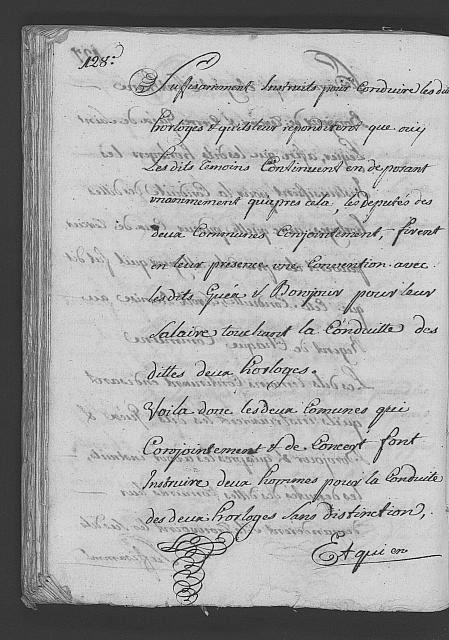 128:
Suffisamment Instruits pour Conduire les dits
horloges & qu'ils leur repondirent que oüy
Les dits temoins Continuent en deposant
unanimement qu'apres cela, les deputés des
deux Communes Conjointement, firent
en leur presence une Convention avec
les dits Guéa & Bonjour pour leur
Salaire touchant la Conduitte des
dittes deux horloges.
Voila donc les deux Comunes qui
Conjointement & de Concert font
Instruire deux hommes pour la Conduite
des deux horloges Sans distinction,
Et qui en